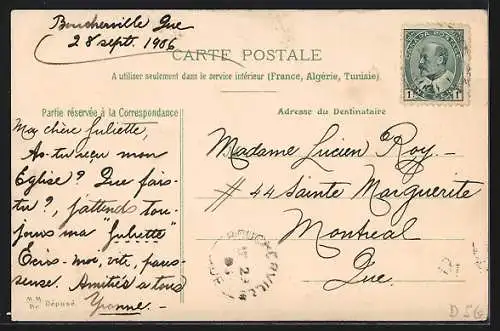 Boucherville Que
28 sept. 1906
CARTE POSTALE
A utiliser seulement dans le service intérieur (France, Algérie, Tunisie).
Partie réservée à la Correspondance
Ma chère Juliette,
As-tu reçu mon
Eglise? Que fais-
tu?, j'attends tou-
jours ma "Juliette"
Ecris-moi, vite, pares-
seuse. Amitiés à tous
Yvonne.
M.M
Déposé.
Adresse du Destinataire
Madame Lucien Roy
# 44 Sainte Marguerite
Montreal
Que.
CANADA POSTAGE
1 1